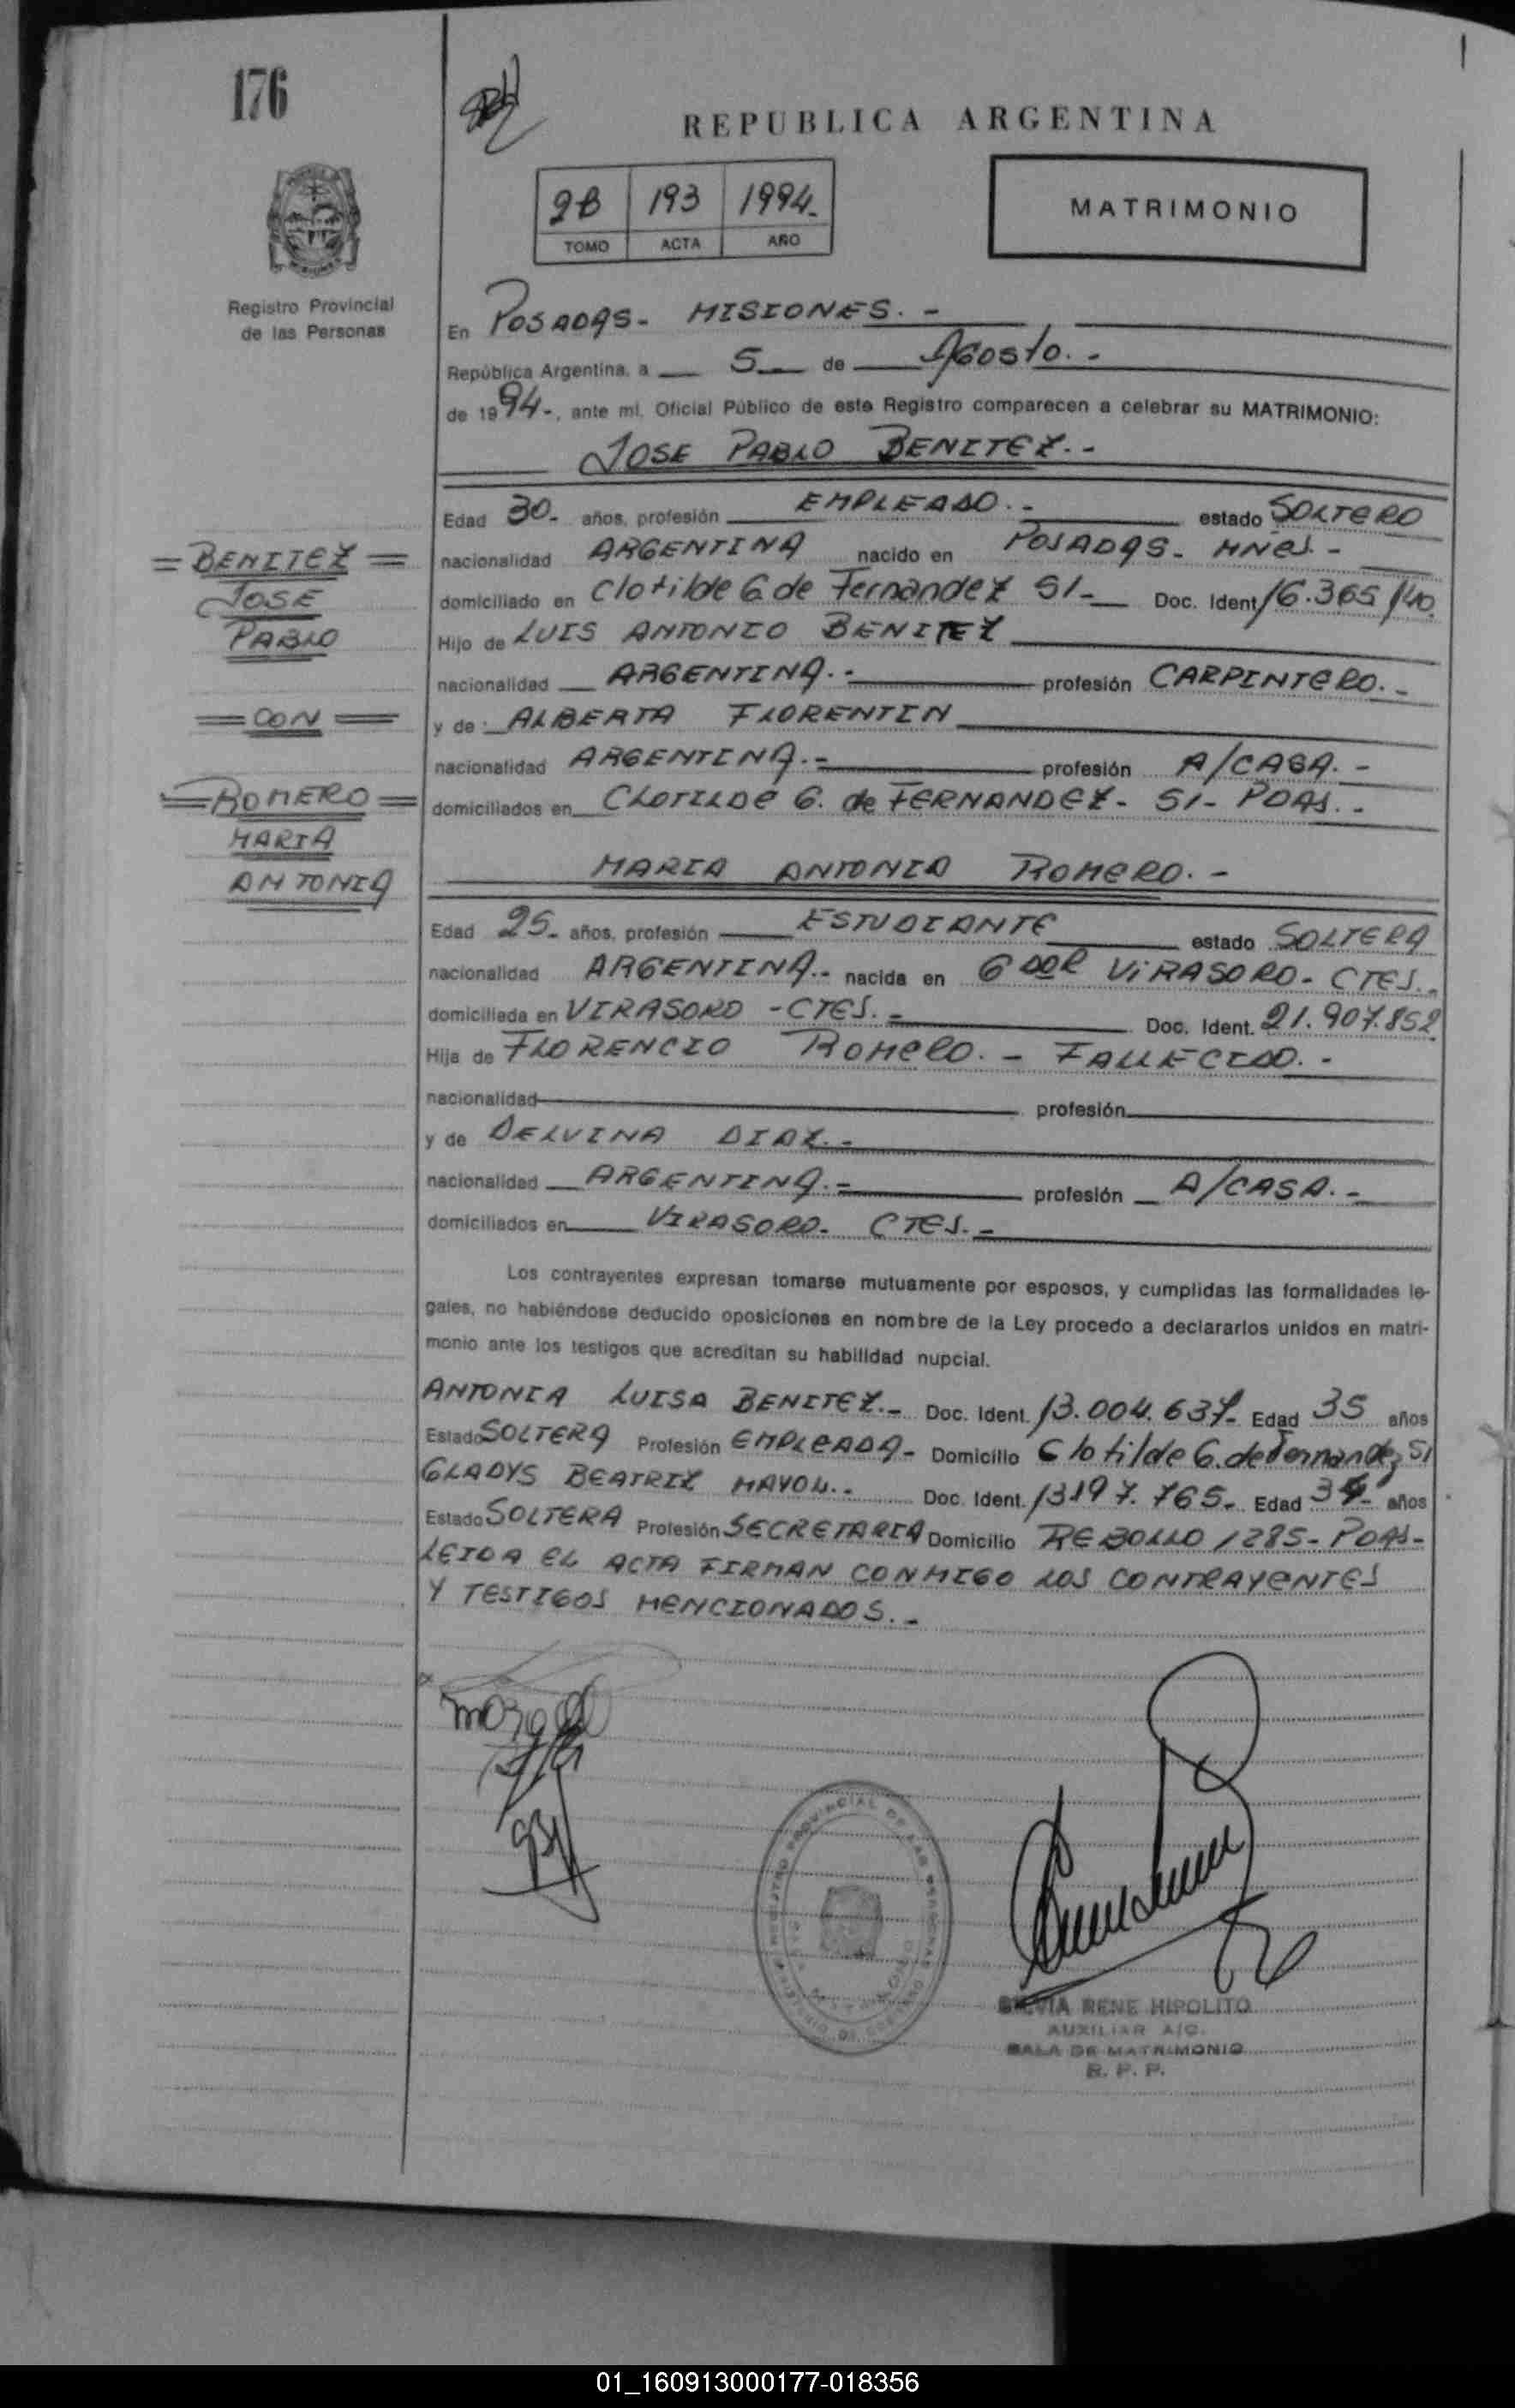 176
REPUBLICA ARGENTINA
2B 193 1994.
TOMO ACTA AÑO
MATRIMONIO
Registro Provincial
de las Personas
En POSADAS - MISIONES.-
República Argentina, a 5 de Agosto.-
de 1994-, ante mí, Oficial Público de este Registro comparecen a celebrar su MATRIMONIO:
JOSE PABLO BENITEZ.-
Edad 30- años, profesión EMPLEADO.- estado SOLTERO
nacionalidad ARGENTINA nacido en POSADAS - MNES.-
domiciliado en Clotilde G de Fernandez S/- Doc. Ident. 16.365.140.
Hijo de LUIS ANTONIO BENITEZ
nacionalidad ARGENTINA.- profesión CARPINTERO.-
y de ALBERTA FLORENTIN
nacionalidad ARGENTINA.- profesión A/CASA.-
domiciliados en CLOTILDE G. de FERNANDEZ - S/- PDAS.-
= BENITEZ =
JOSE
PABLO
= CON =
= ROMERO =
MARIA
ANTONIA
MARIA ANTONIA ROMERO.-
Edad 25- años, profesión ESTUDIANTE estado SOLTERA
nacionalidad ARGENTINA.- nacida en GDOR VIRASORO - CTES.-
domiciliada en VIRASORO - CTES.- Doc. Ident. 21.907.852
Hija de FLORENCIO ROMERO.- FALLECIDO.-
nacionalidad profesión
y de DELVINA DIAZ.-
nacionalidad ARGENTINA.- profesión A/CASA.-
domiciliados en VIRASORO - CTES.-
Los contrayentes expresan tomarse mutuamente por esposos, y cumplidas las formalidades le-
gales, no habiéndose deducido oposiciones en nombre de la Ley procedo a declararlos unidos en matri-
monio ante los testigos que acreditan su habilidad nupcial.
ANTONIA LUISA BENITEZ.- Doc. Ident. 13.004.637- Edad 35 años
Estado SOLTERA Profesión EMPLEADA- Domicilio Clotilde G. de Fernandez S/
GLADYS BEATRIZ MAYOL.- Doc. Ident. 13197.765- Edad años
Estado SOLTERA Profesión SECRETARIA Domicilio REBOLLO 1285- PDAS-
LEIDA EL ACTA FIRMAN CONMIGO LOS CONTRAYENTES
Y TESTIGOS MENCIONADOS.-
REGISTRO PROVINCIAL DE LAS PERSONAS
SILVIA RENE HIPOLITO
AUXILIAR A/C.
SALA DE MATRIMONIO
R. P. P.
01_160913000177-018356